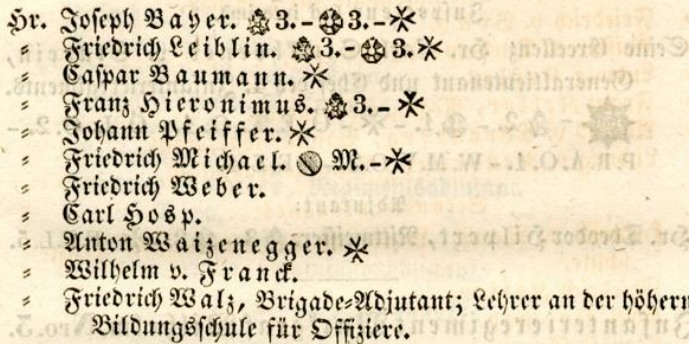 Hr. Joseph Bayer. 3. - 3. -
" Friedrich Leiblin. 3. - 3.
" Caspar Baumann.
" Franz Hieronimus. 3. -
" Johann Pfeiffer.
" Friedrich Michael. M. -
" Friedrich Weber.
" Carl Hosp.
" Anton Waizenegger.
" Wilhelm v. Franck.
" Friedrich Walz, Brigade=Adjutant; Lehrer an der höhern
Bildungsschule für Offiziere.